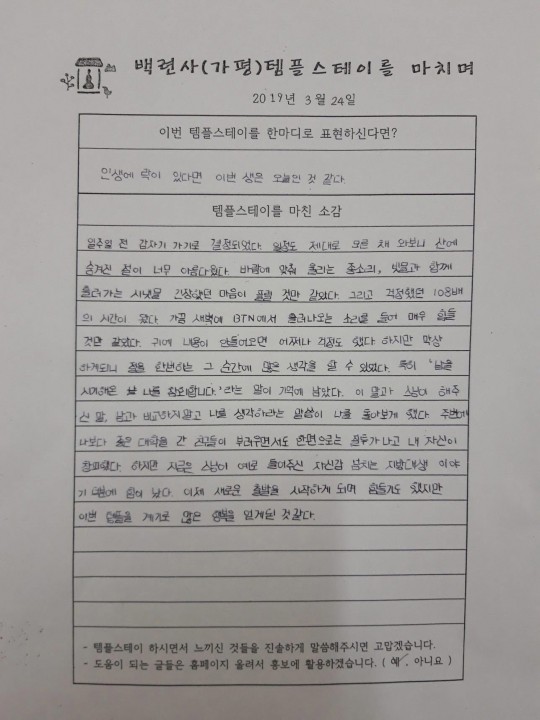 백련사(가평)템플스테이를 마치며
2019년 3월 24일
이번 템플스테이를 한마디로 표현하신다면?
인생에 락이 있다면 이번 생은 오늘인 것 같다.
템플스테이를 마친 소감
일주일 전 갑자기 가기로 결정되었다. 일정도 제대로 모른 채 와보니 산에
숨겨진 절이 너무 아름다웠다. 바람에 맞춰 울리는 종소리, 빗물과 함께
흘러가는 시냇물 긴장했던 마음이 풀릴 것만 같았다. 그리고 걱정했던 108배
의 시간이 왔다. 가끔 새벽에 BTN에서 흘러나오는 소리를 들어 매우 힘들
것만 같았다. 귀에 내용이 안들어오면 어쩌나 걱정도 했다 하지만 막상
하게되니 절을 한번하는 그 순간에 많은 생각을 할 수 있었다. 특히 '남을
시기해온 나를 참회합니다.'라는 말이 기억에 남았다. 이 말과 스님이 해주
신 말, 남과 비교하지말고 나를 생각하라는 말씀이 나를 돌아보게 했다. 주변에
나보다 좋은 대학을 간 친구들이 부러우면서도 한편으로는 질투가 나고 내 자신이
창피했다. 하지만 지금은 스님이 예로 들어주신 자신감 넘치는 지방대생 이야
기 덕분에 힘이 났다. 이제 새로운 출발을 시작하게 되며 힘들기도 했지만
이번 템플을 계기로 많은 행복을 얻게될 것 같다.
- 템플스테이 하시면서 느끼신 것들을 진솔하게 말씀해주시면 고맙겠습니다.
- 도움이 되는 글들은 홈페이지 올려서 홍보에 활용하겠습니다. ( 예 , 아니요 )